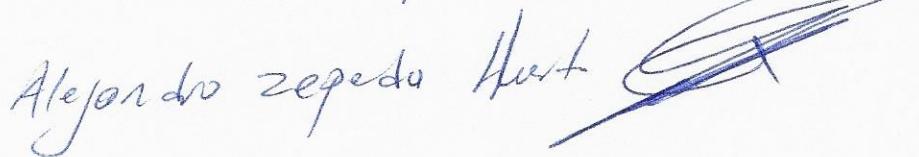 Alejandro zepeda Huert